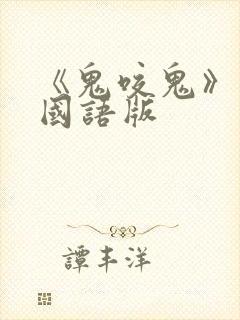 《鬼咬鬼》
國語版
譚丰洋